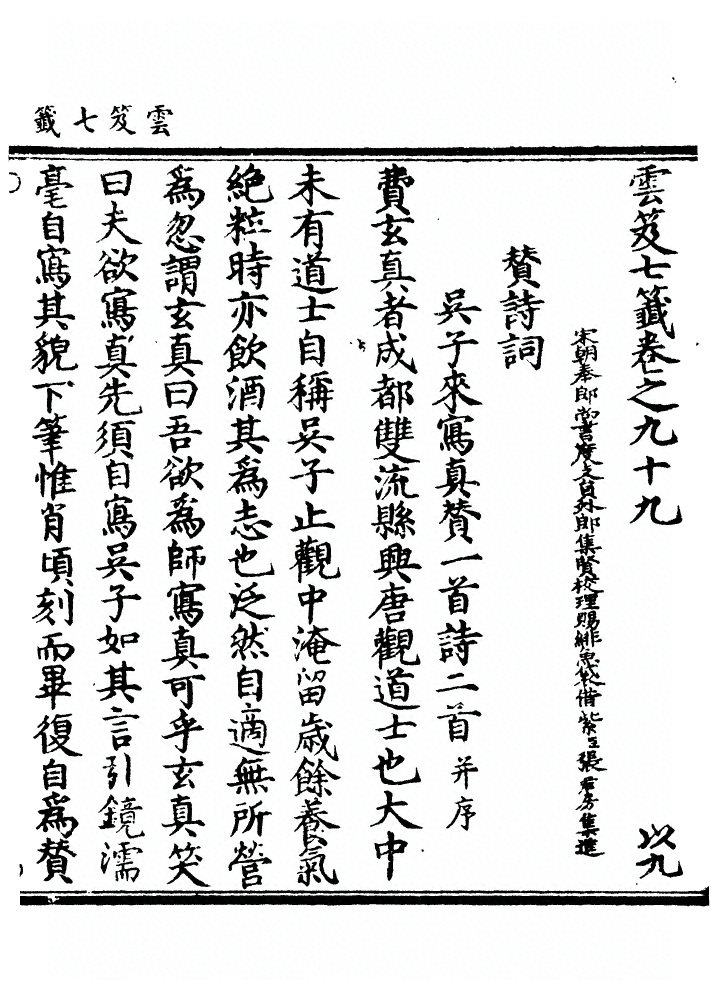 雲笈七籤
雲笈七籤卷之九十九 以九
宋朝奉郎尚書度支員外郎集賢校理賜緋魚袋借紫臣張君房集進
賛詩詞
吳子來寫真賛一首詩二首并序
費玄真者成都雙流縣興唐觀道士也大中
未有道士自稱吳子止觀中淹留歲餘養氣
絶粒時亦飲酒其爲志也泛然自適無所營
爲忽謂玄真曰吾欲爲師寫真可乎玄真笑
曰夫欲寫真先須自寫吳子如其言引鏡濡
毫自寫其貌下筆惟肖頃刻而畢復自爲賛